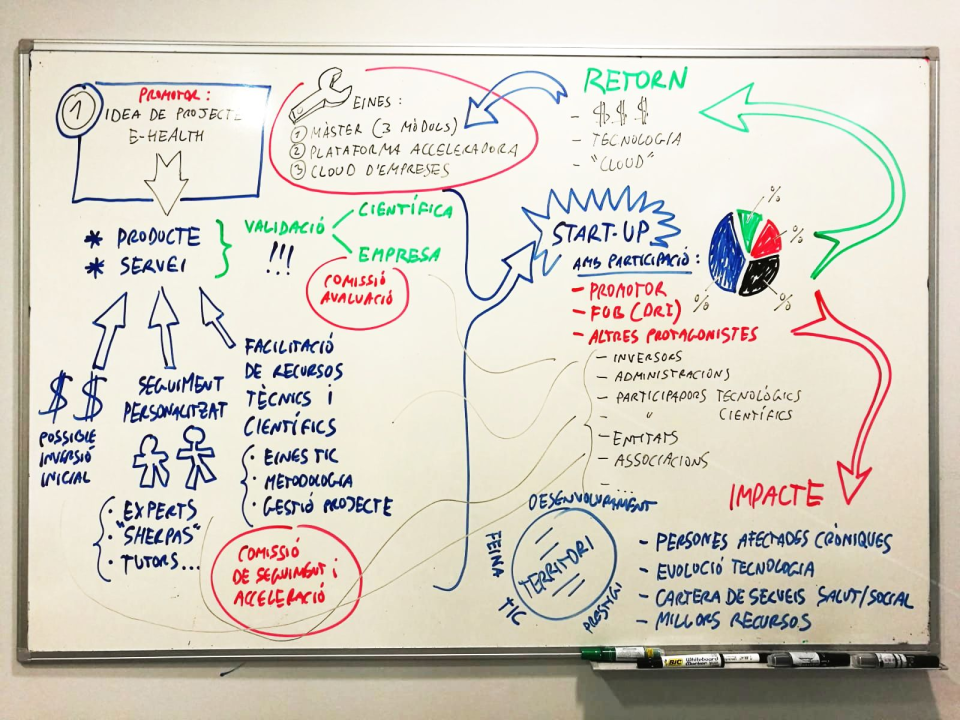 1
PROMOTOR:
IDEA DE PROJECTE
E-HEALTH
* PRODUCTE
* SERVEI
VALIDACIÓ
!!!
CIENTÍFICA
EMPRESA
COMISSIÓ
AVALUACIÓ
$ $
POSSIBLE
INVERSIÓ
INICIAL
SEGUIMENT
PERSONALITZAT
· EXPERTS
· "SHERPAS"
· TUTORS...
FACILITACIÓ
DE RECURSOS
TÈCNICS I
CIENTÍFICS
· EINES TIC
· METODOLOGIA
· GESTIÓ PROJECTE
COMISSIÓ
DE SEGUIMENT I
ACCELERACIÓ
EINES:
① MÀSTER (3 MÒDULS)
② PLATAFORMA ACCELERADORA
③ CLOUD D'EMPRESES
RETORN
- $.$.$
- TECNOLOGIA
- "CLOUD"
START-UP
AMB PARTICIPACIÓ:
- PROMOTOR
- FOB (DRI)
- ALTRES PROTAGONISTES
- INVERSORS
- ADMINISTRACIONS
- PARTICIPADORS TECNOLÒGICS
- " CIENTÍFICS
- ENTITATS
- ASSOCIACIONS
- ...
%
%
%
%
IMPACTE
- PERSONES AFECTADES CRÒNIQUES
- EVOLUCIÓ TECNOLOGIA
- CARTERA DE SERVEIS SALUT/SOCIAL
- MILLORS RECURSOS
DESENVOLUPAMENT
FEINA
TERRITORI
TIC
PRESTIGI
BIC
Whiteboard
Marker